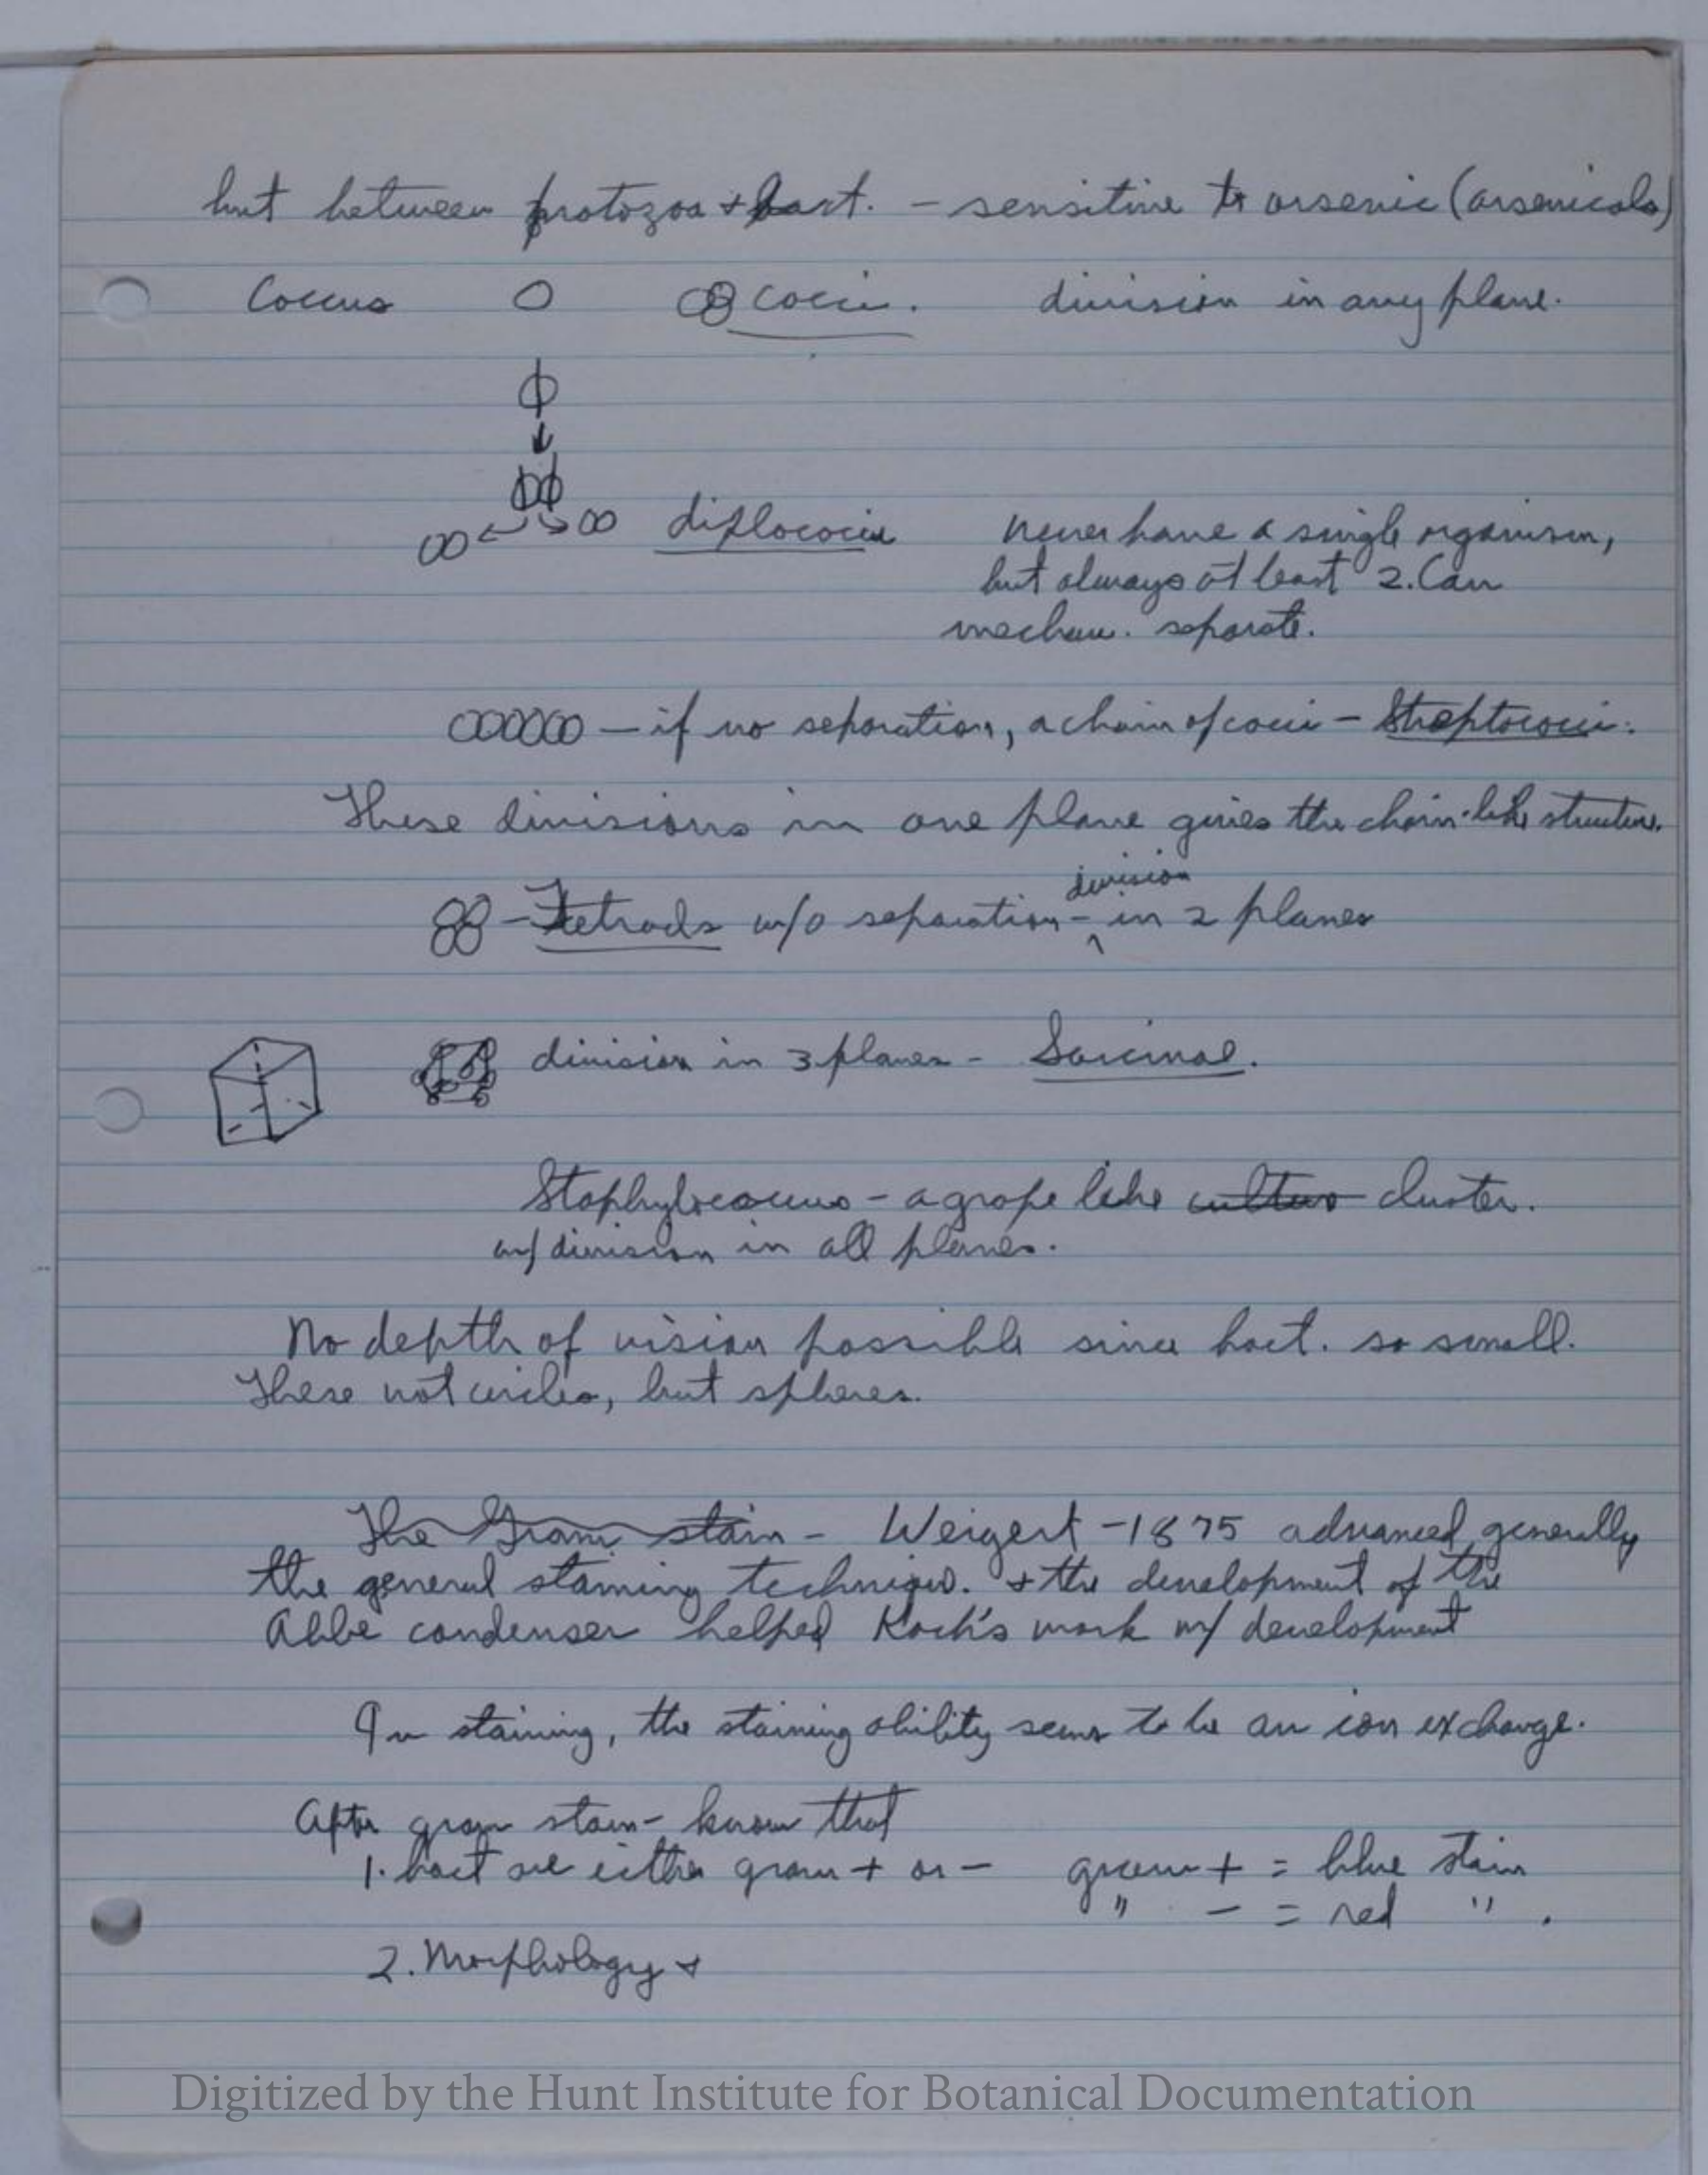 but between protozoa + bact. - sensitive to arsenic (arsenicals)
Coccus cocci. division in any plane.
diplococci never have a single organism,
but always at least 2. Can
mechan. separate.
- if no separation, a chain of cocci - Streptococci.
These divisions in one plane gives the chain-like structure.
division
- Tetrads w/o separation - in 2 planes
division in 3 planes - Sarcinae.
Staphylococcus - a grape like culture cluster.
w/ division in all planes.
No depth of vision possible since bact. so small.
These not circles, but spheres.
The Gram stain - Weigert - 1875 advanced generally
the general staining technique. + the development of the
Abbe condenser helped Koch's work w/ development
In staining, the staining ability seems to be an ion exchange.
After gram stain - know that
1. bact are either gram + or - gram + = blue stain
" - = red " .
2. Morphology +
Digitized by the Hunt Institute for Botanical Documentation